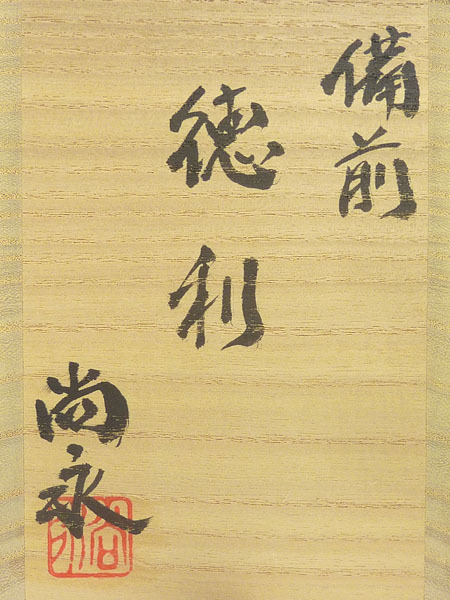 備前
徳利
尚永